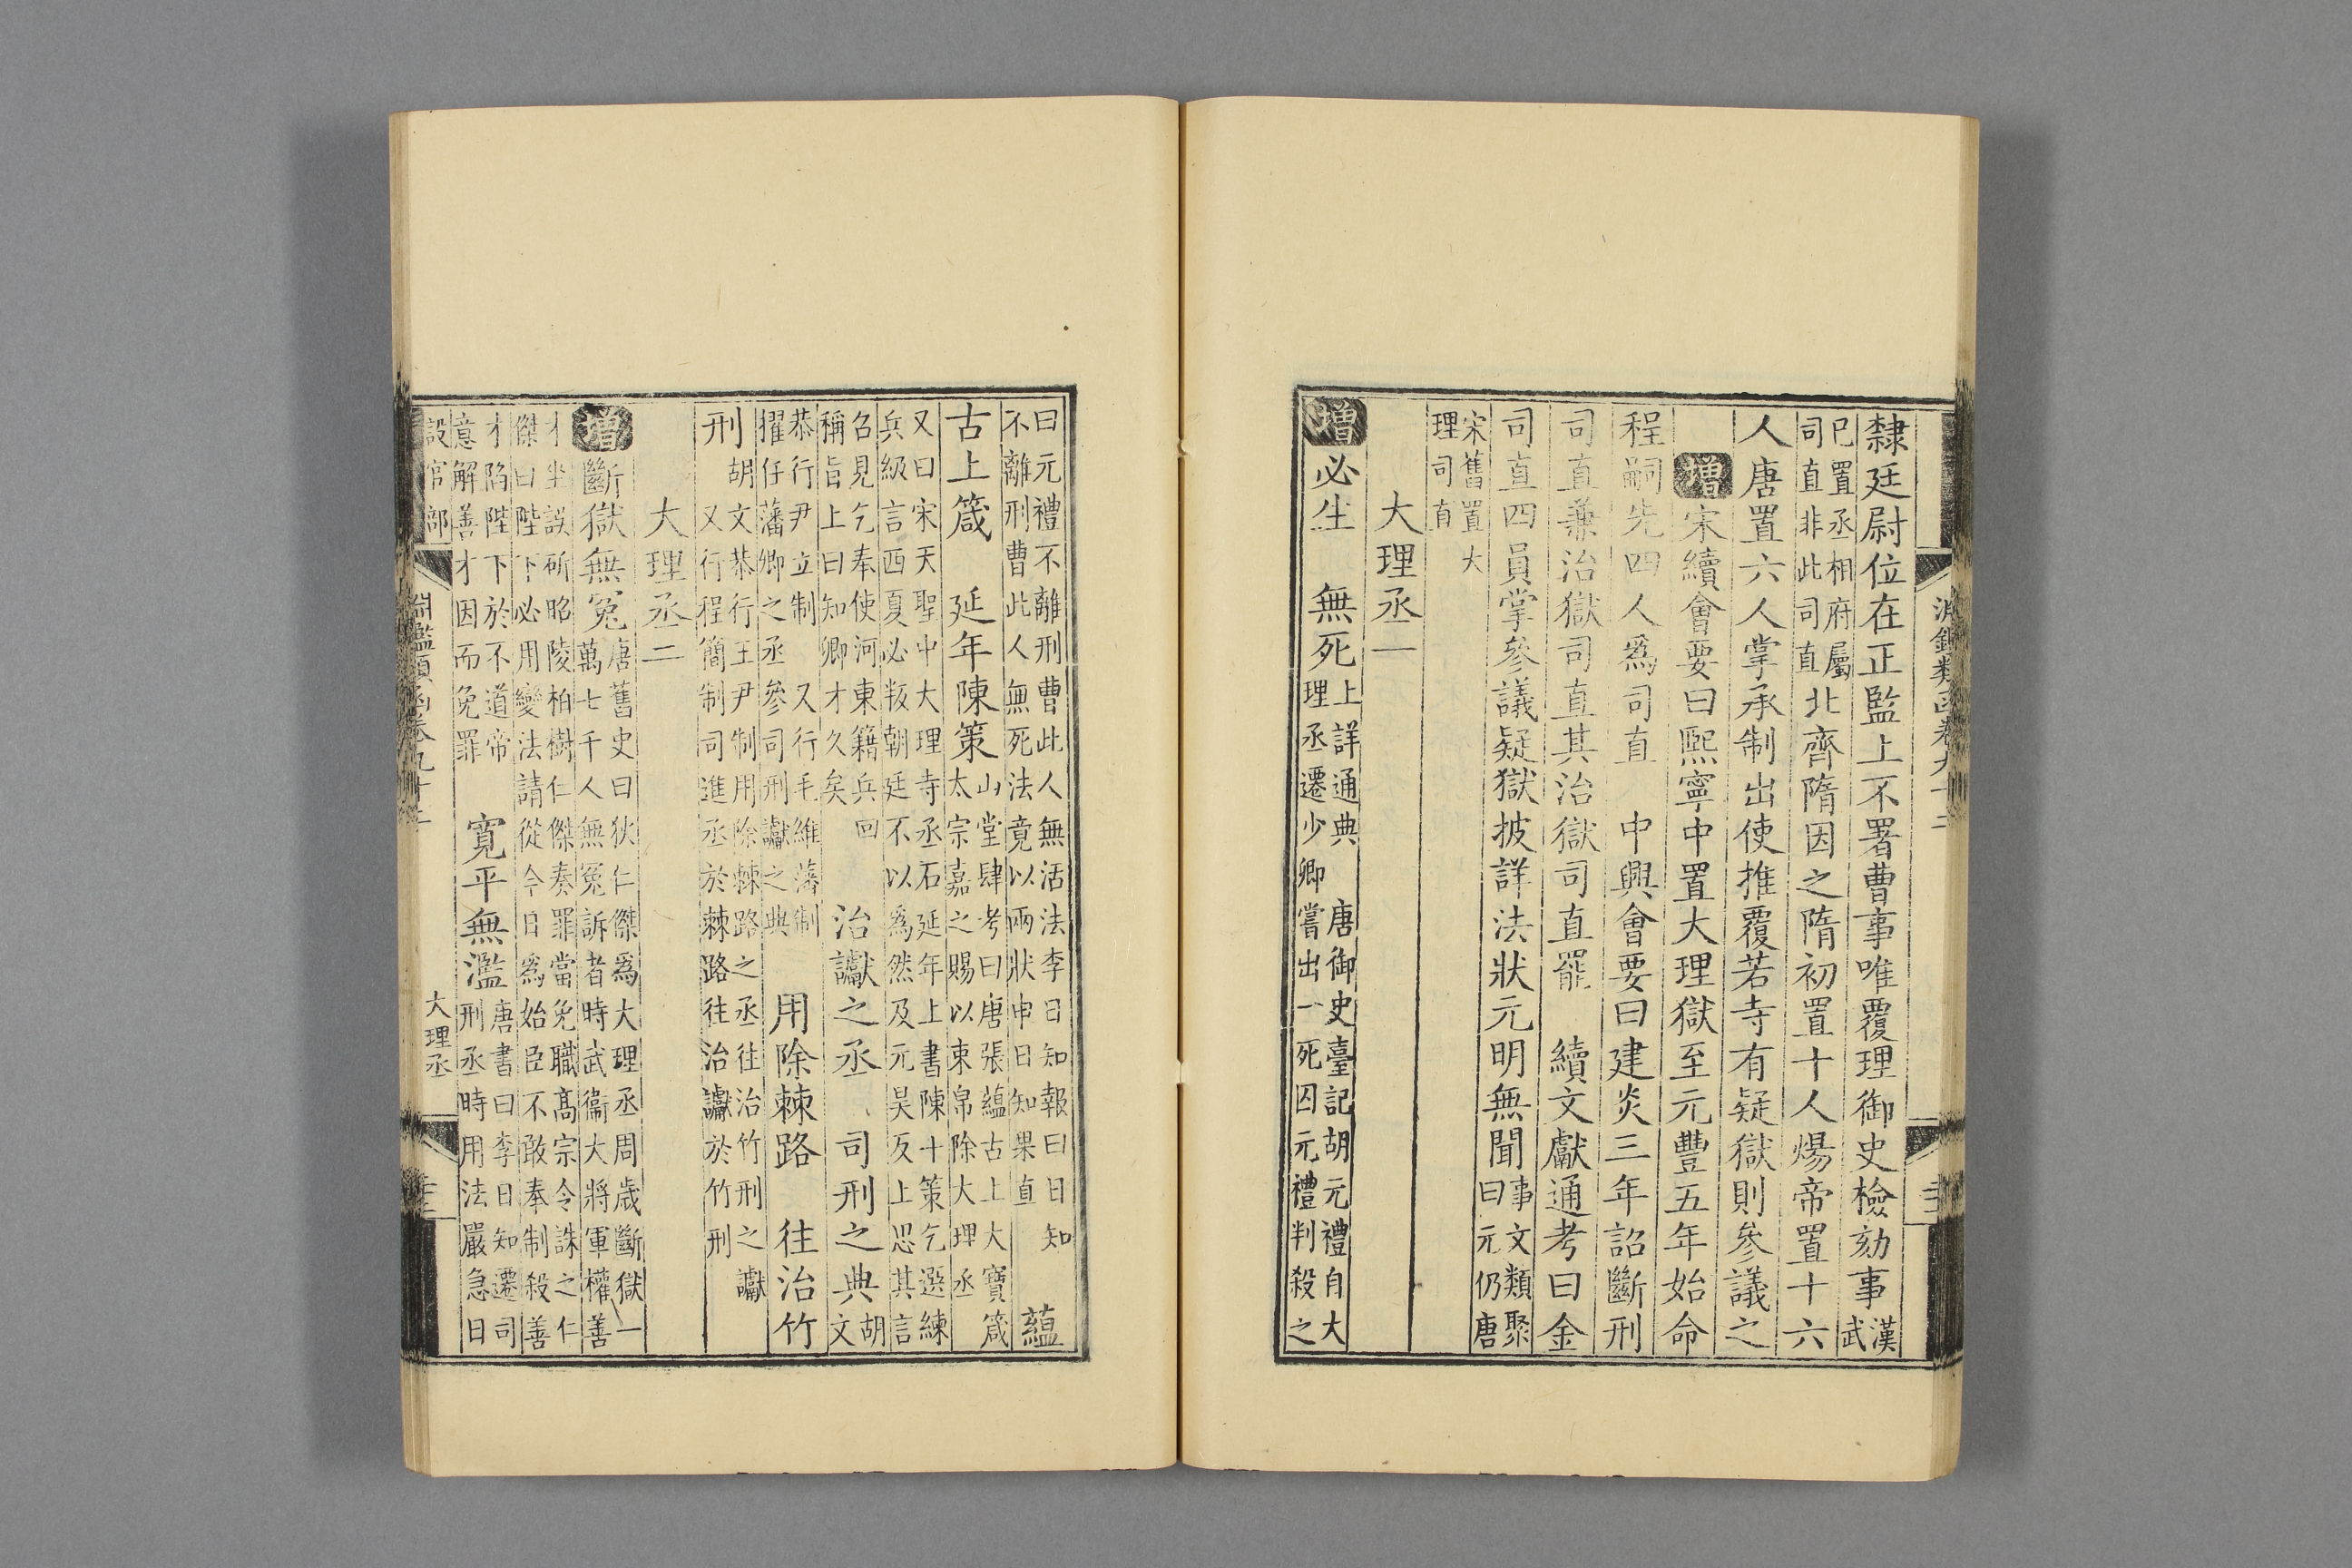 隸廷尉位在正監上不署曹事唯覆理御史檢劾事漢武
已置丞相府屬司直非此司直北齊隋因之隋初置十人煬帝置十六
人唐置六人掌承制出使推覆若寺有疑獄則參議之
增宋續會要曰熙寧中置大理獄至元豐五年始命
程嗣先四人爲司直 中興會要曰建炎三年詔斷刑
司直兼治獄司直其治獄司直罷 續文獻通考曰金
司直四員掌參議疑獄披詳法狀元明無聞事文類聚曰元仍唐
宋舊置大理司直
大理丞一
增必生 無死上詳通典 唐御史臺記胡元禮自大理丞遷少卿嘗出一死囚元禮判殺之
曰元禮不離刑曹此人無活法李日知報曰日知不離刑曹此人無死法竟以兩狀申日知果直 蘊
古上箴 延年陳策山堂肆考曰唐張蘊古上大寶箴太宗嘉之賜以束帛除大理丞
又曰宋天聖中大理寺丞石延年上書陳十策乞選練兵級言西夏必叛朝廷不以爲然及元昊反上思其言
召見乞奉使河東籍兵回稱旨上曰知卿才久矣 治讞之丞 司刑之典胡文
恭行尹立制 又行毛維藩制擢仔藩卿之丞參司刑讞之典 用除棘路 往治竹
刑胡文恭行王尹制用除棘路之丞往治竹刑之讞 又行程簡制司進丞於棘路往治讞於竹刑
大理丞二
增斷獄無冤唐舊史曰狄仁傑爲大理丞周歲斷獄一萬七千人無冤訴者時武衞大將軍權善
才坐誤斫昭陵柏樹仁傑奏罪當免職高宗令誅之仁傑曰陛下必用變法請從今日爲始臣不敢奉制殺善
才陷陛下於不道帝意解善才因而免罪 寬平無濫唐書曰李日知遷司刑丞時用法嚴急日
設官部
淵鑑類函卷九十二
大理丞